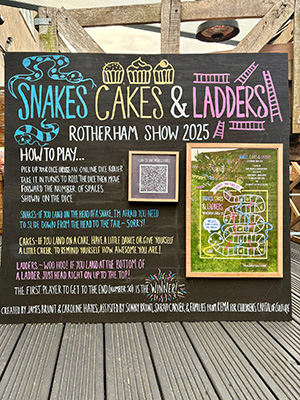 SNAKES CAKES & LADDERS
ROTHERHAM SHOW 2025
HOW TO PLAY...
PICK UP YOUR DICE OR USE AN ONLINE DICE ROLLER
TAKE IT IN TURNS TO ROLL THE DICE THEN MOVE
FORWARD THE NUMBER OF SPACES
SHOWN ON THE DICE.
SNAKES - IF YOU LAND ON THE HEAD OF A SNAKE, I'M AFRAID YOU NEED
TO SLIDE DOWN FROM THE HEAD TO THE TAIL - SORRY!
CAKES - IF YOU LAND ON A CAKE, HAVE A LITTLE DANCE OR GIVE YOURSELF
A LITTLE CHEER, TO REMIND YOURSELF HOW AWESOME YOU ARE!
LADDERS - WOO HOO! IF YOU LAND AT THE BOTTOM OF
A LADDER JUST HEAD RIGHT ON UP TO THE TOP!
THE FIRST PLAYER TO GET TO THE END (NUMBER 30) IS THE WINNER!
CREATED BY JAMES BRUNT & CAROLINE HAYES, ASSISTED BY SONNY BRUNT, SARAH & FAMILIES FROM REMA FOR CHILDREN'S CAPITAL OF CULTURE
SNAKES CAKES
& LADDERS